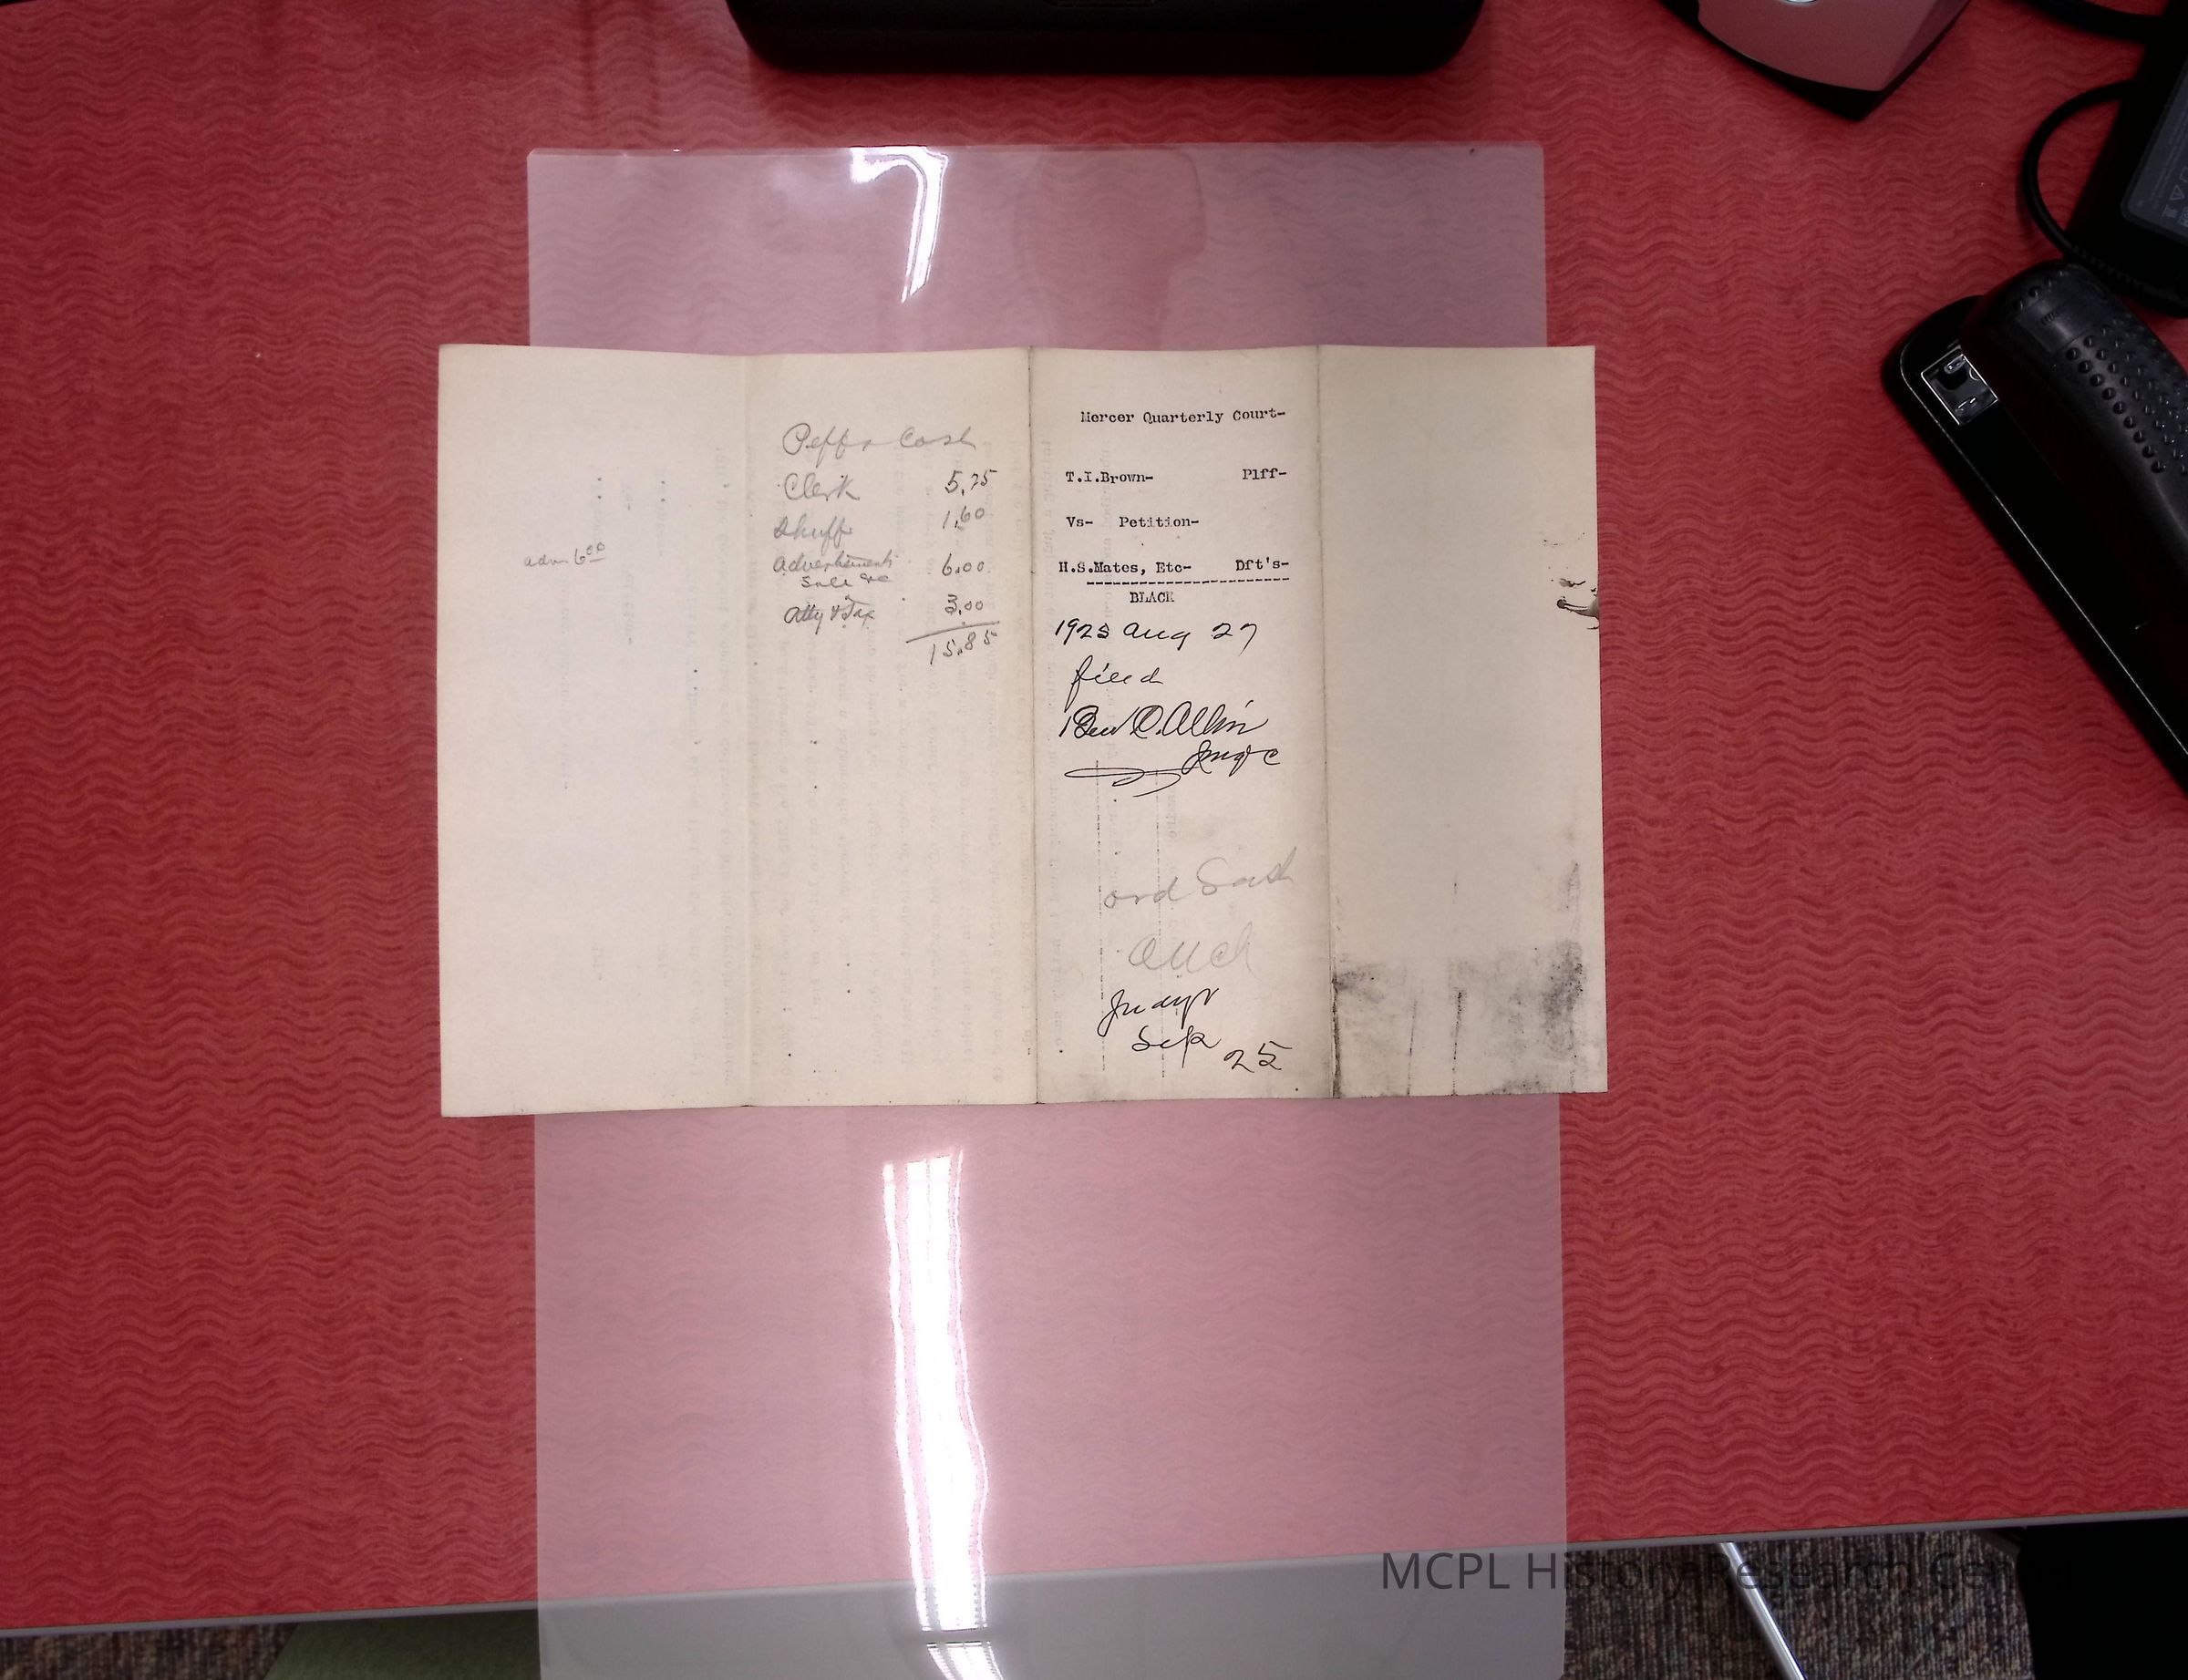 adm 6.00
Peffs Cost
Clerk 5.25
Shuff 1.60
advertisments 6.00
Sale &c
Atty & Tax 3.00
15.85
Mercer Quarterly Court-
T.I.Brown- Plff-
Vs- Petition-
H.S.Mates, Etc- Dft's-
BLACK
1925 Aug 27
filed
Ben C. Allin
Judge
ord Sash
Judgt
Sep 25
MCPL History Research Cen